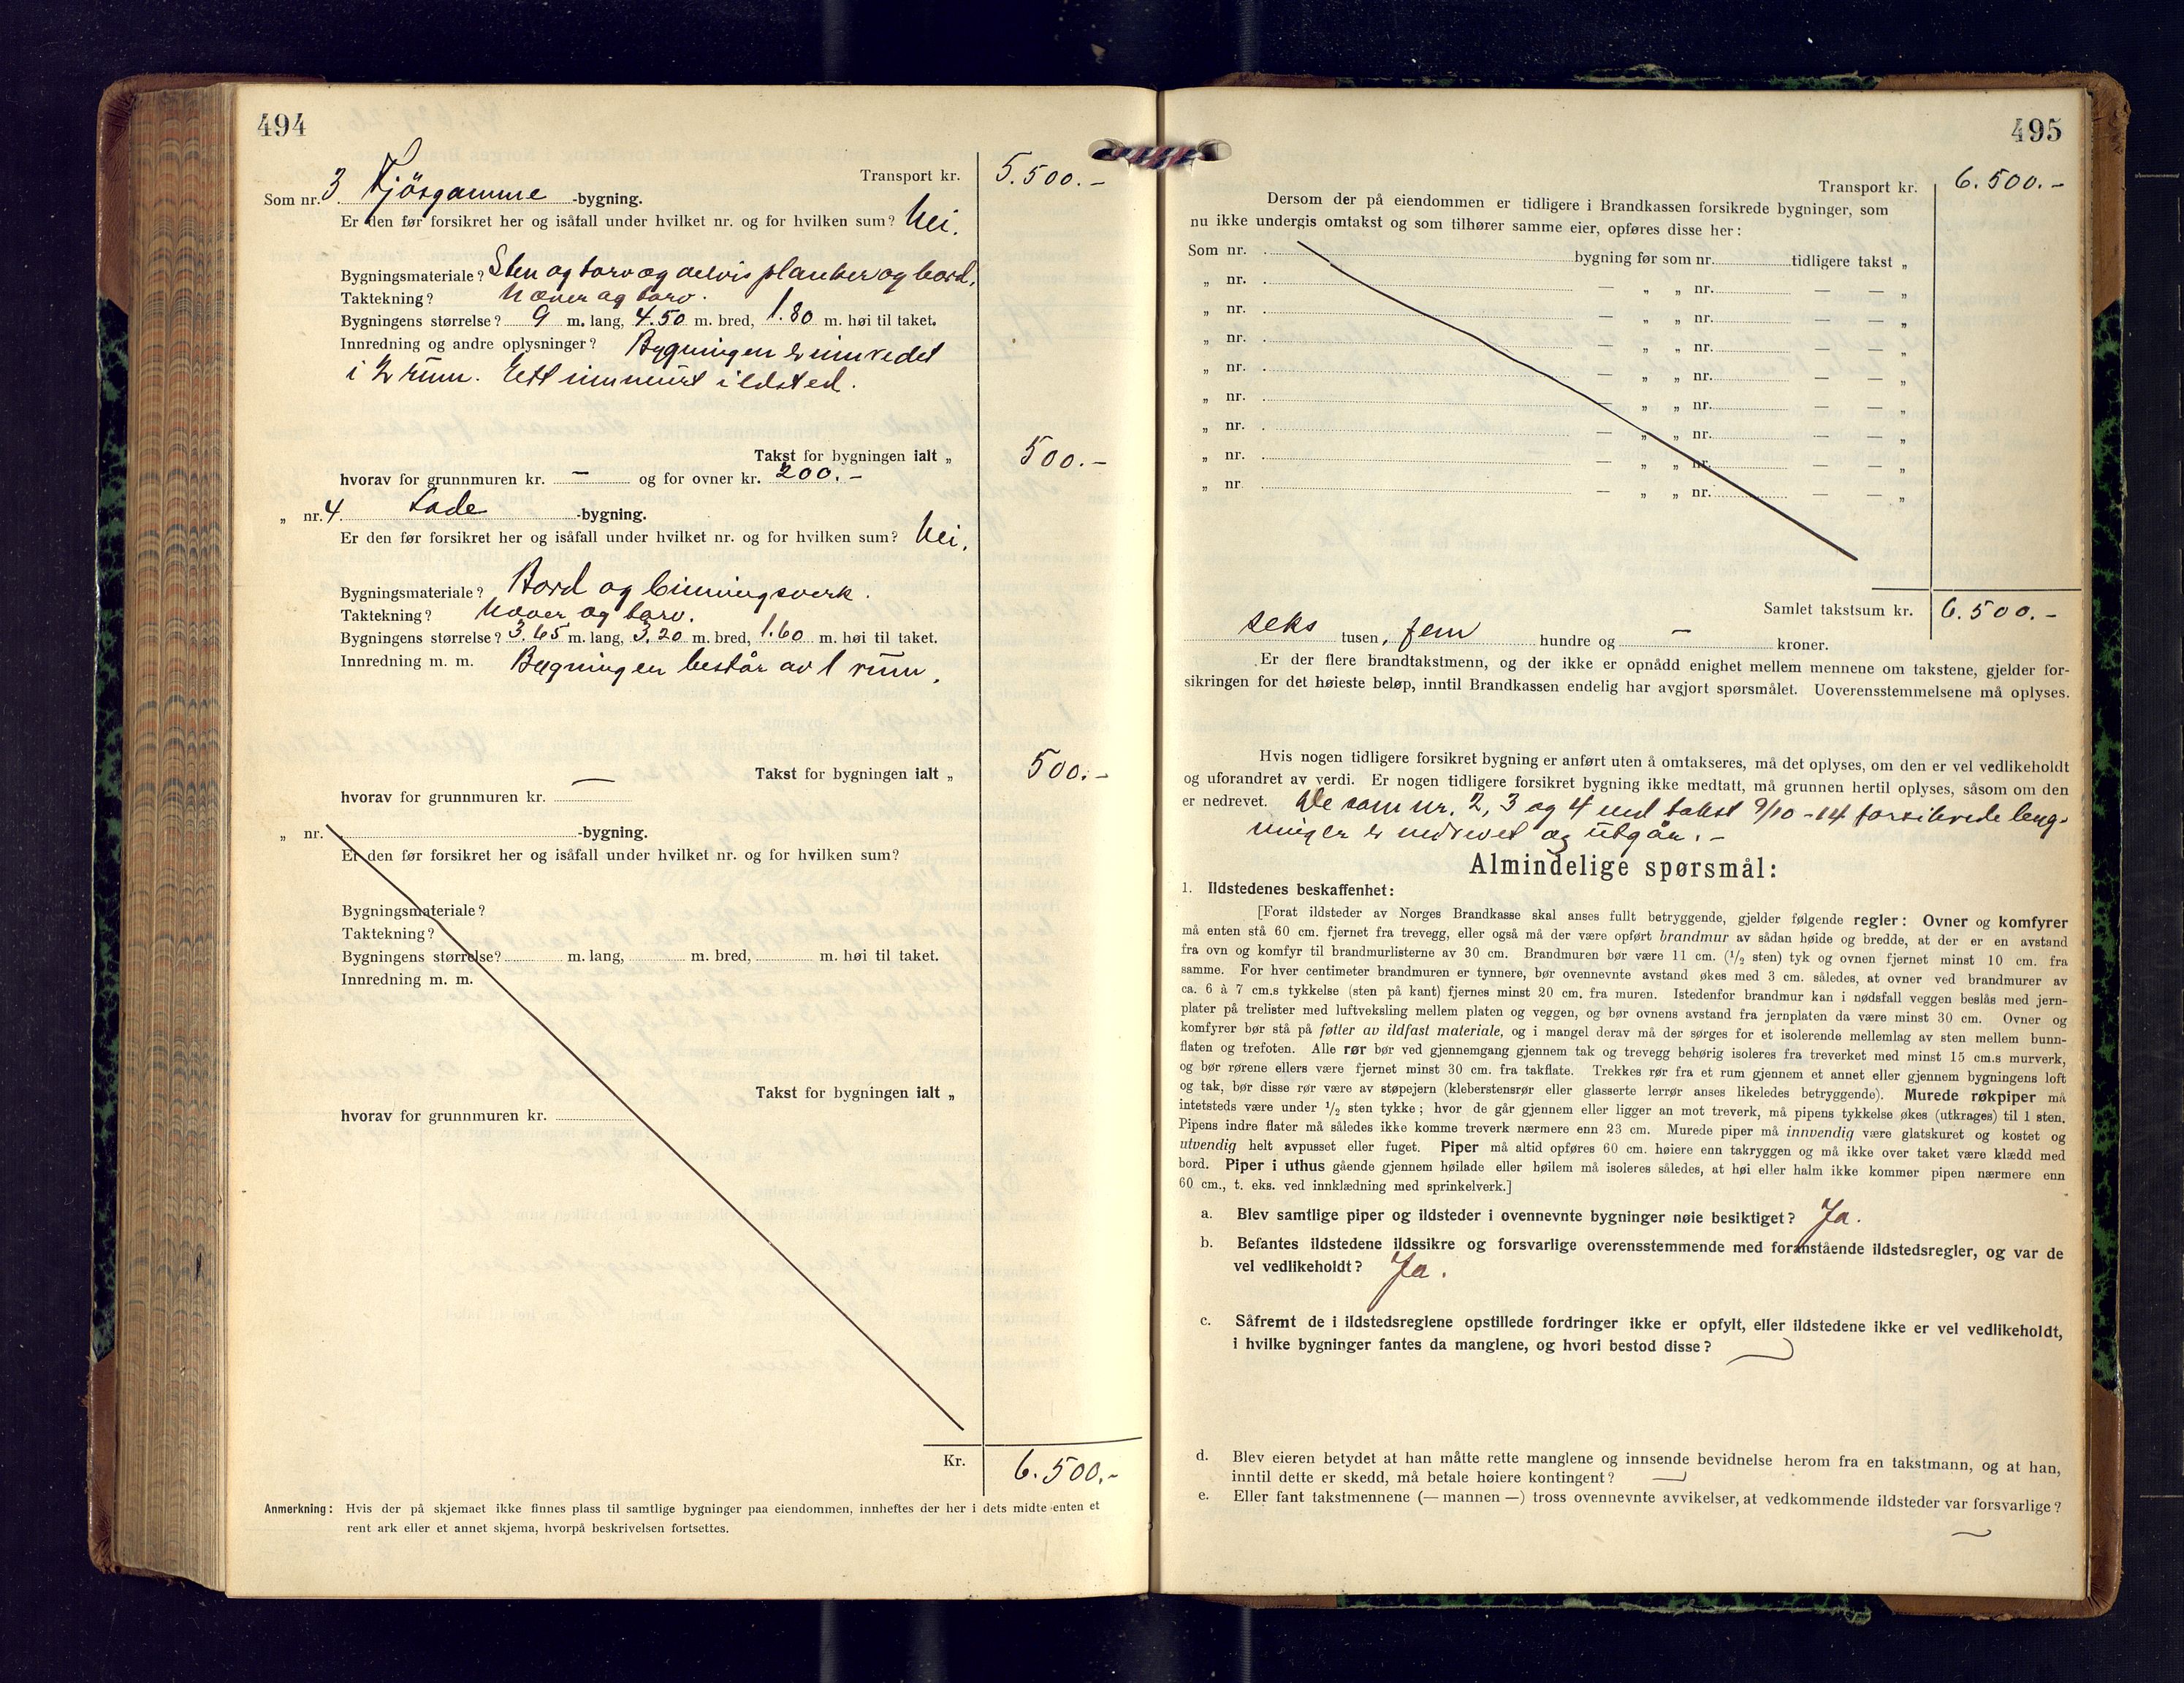 494
Transport kr. 5.500.-
Som nr. 3 Fjösgamme -bygning.
Er den før forsikret her og isåfall under hvilket nr. og for hvilken sum? Nei.
Bygningsmateriale? Sten og torv og delvis planker og bord.
Taktekning? Næver og torv.
Bygningens størrelse? 9 m. lang, 4.50 m. bred, 1.80 m. høi til taket.
Innredning og andre oplysninger? Bygningen er innredet
i 2 rum. Ett innmurt ildsted.
Takst for bygningen ialt „ 500.-
hvorav for grunnmuren kr. — og for ovner kr. 200.-
„ nr. 4 Lade -bygning.
Er den før forsikret her og isåfall under hvilket nr. og for hvilken sum? Nei.
Bygningsmateriale? Bord og binningsverk.
Taktekning? Næver og torv.
Bygningens størrelse? 3.65 m. lang, 3.20 m. bred, 1.60 m. høi til taket.
Innredning m. m. Bygningen består av 1 rum.
Takst for bygningen ialt „ 500.-
hvorav for grunnmuren kr. —
„ nr. -bygning.
Er den før forsikret her og isåfall under hvilket nr. og for hvilken sum?
Bygningsmateriale?
Taktekning?
Bygningens størrelse? m. lang, m. bred, m. høi til taket.
Innredning m. m.
Takst for bygningen ialt „
hvorav for grunnmuren kr.
Kr. 6.500.-
Anmerkning: Hvis der på skjemaet ikke finnes plass til samtlige bygninger paa eiendommen, innheftes der her i dets midte enten et
rent ark eller et annet skjema, hvorpå beskrivelsen fortsettes.
495
Transport kr. 6.500.-
Dersom der på eiendommen er tidligere i Brandkassen forsikrede bygninger, som
nu ikke undergis omtakst og som tilhører samme eier, opføres disse her:
Som nr. bygning før som nr. tidligere takst „
„ nr. — „ „ nr. — — „
„ nr. — „ „ nr. — — „
„ nr. — „ „ nr. — — „
„ nr. — „ „ nr. — — „
„ nr. — „ „ nr. — — „
„ nr. — „ „ nr. — — „
„ nr. — „ „ nr. — — „
„ nr. — „ „ nr. — — „
Samlet takstsum kr. 6.500.-
seks tusen, fem hundre og — kroner.
Er der flere brandtakstmenn, og der ikke er opnådd enighet mellem mennene om takstene, gjelder for-
sikringen for det høieste beløp, inntil Brandkassen endelig har avgjort spørsmålet. Uoverensstemmelsene må oplyses.
Hvis nogen tidligere forsikret bygning er anført uten å omtakseres, må det oplyses, om den er vel vedlikeholdt
og uforandret av verdi. Er nogen tidligere forsikret bygning ikke medtatt, må grunnen hertil oplyses, såsom om den
er nedrevet. De som nr. 2, 3 og 4 ved takst 9/10-14 forsikrede byg-
ninger er nedrevet og utgår.-
Almindelige spørsmål:
1. Ildstedenes beskaffenhet:
[Forat ildsteder av Norges Brandkasse skal anses fullt betryggende, gjelder følgende regler: Ovner og komfyrer
må enten stå 60 cm. fjernet fra trevegg, eller også må der være opført brandmur av sådan høide og bredde, at der er en avstand
fra ovn og komfyr til brandmurlisterne av 30 cm. Brandmuren bør være 11 cm. (1/2 sten) tyk og ovnen fjernet minst 10 cm. fra
samme. For hver centimeter brandmuren er tynnere, bør ovennevnte avstand økes med 3 cm. således, at ovner ved brandmurer av
ca. 6 à 7 cm.s tykkelse (sten på kant) fjernes minst 20 cm. fra muren. Istedenfor brandmur kan i nødsfall veggen beslås med jern-
plater på trelister med luftveksling mellem platen og veggen, og bør ovnens avstand fra jernplaten da være minst 30 cm. Ovner og
komfyrer bør stå på føtter av ildfast materiale, og i mangel derav må der sørges for et isolerende mellemlag av sten mellem bunn-
flaten og trefoten. Alle rør bør ved gjennemgang gjennem tak og trevegg behørig isoleres fra treverket med minst 15 cm.s murverk,
og bør rørene ellers være fjernet minst 30 cm. fra takflate. Trekkes rør fra et rum gjennem et annet eller gjennem bygningens loft
og tak, bør disse rør være av støpejern (kleberstensrør eller glasserte lerrør anses likeledes betryggende). Murede røkpiper må
intetsteds være under 1/2 sten tykke; hvor de går gjennem eller ligger an mot treverk, må pipens tykkelse økes (utkrages) til 1 sten.
Pipens indre flater må således ikke komme treverk nærmere enn 23 cm. Murede piper må innvendig være glatskuret og kostet og
utvendig helt avpusset eller fuget. Piper må altid opføres 60 cm. høiere enn takryggen og må ikke over taket være klædd med
bord. Piper i uthus gående gjennem høilade eller høilem må isoleres således, at høi eller halm ikke kommer pipen nærmere enn
60 cm., t. eks. ved innklædning med sprinkelverk.]
a. Blev samtlige piper og ildsteder i ovennevnte bygninger nøie besiktiget? Ja.
b. Befantes ildstedene ildssikre og forsvarlige overensstemmende med foranstående ildstedsregler, og var de
vel vedlikeholdt? Ja.
c. Såfremt de i ildstedsreglene opstillede fordringer ikke er opfylt, eller ildstedene ikke er vel vedlikeholdt,
i hvilke bygninger fantes da manglene, og hvori bestod disse? —
d. Blev eieren betydet at han måtte rette manglene og innsende bevidnelse herom fra en takstmann, og at han,
inntil dette er skedd, må betale høiere kontingent? —
e. Eller fant takstmennene (— mannen —) tross ovennevnte avvikelser, at vedkommende ildsteder var forsvarlige?
—